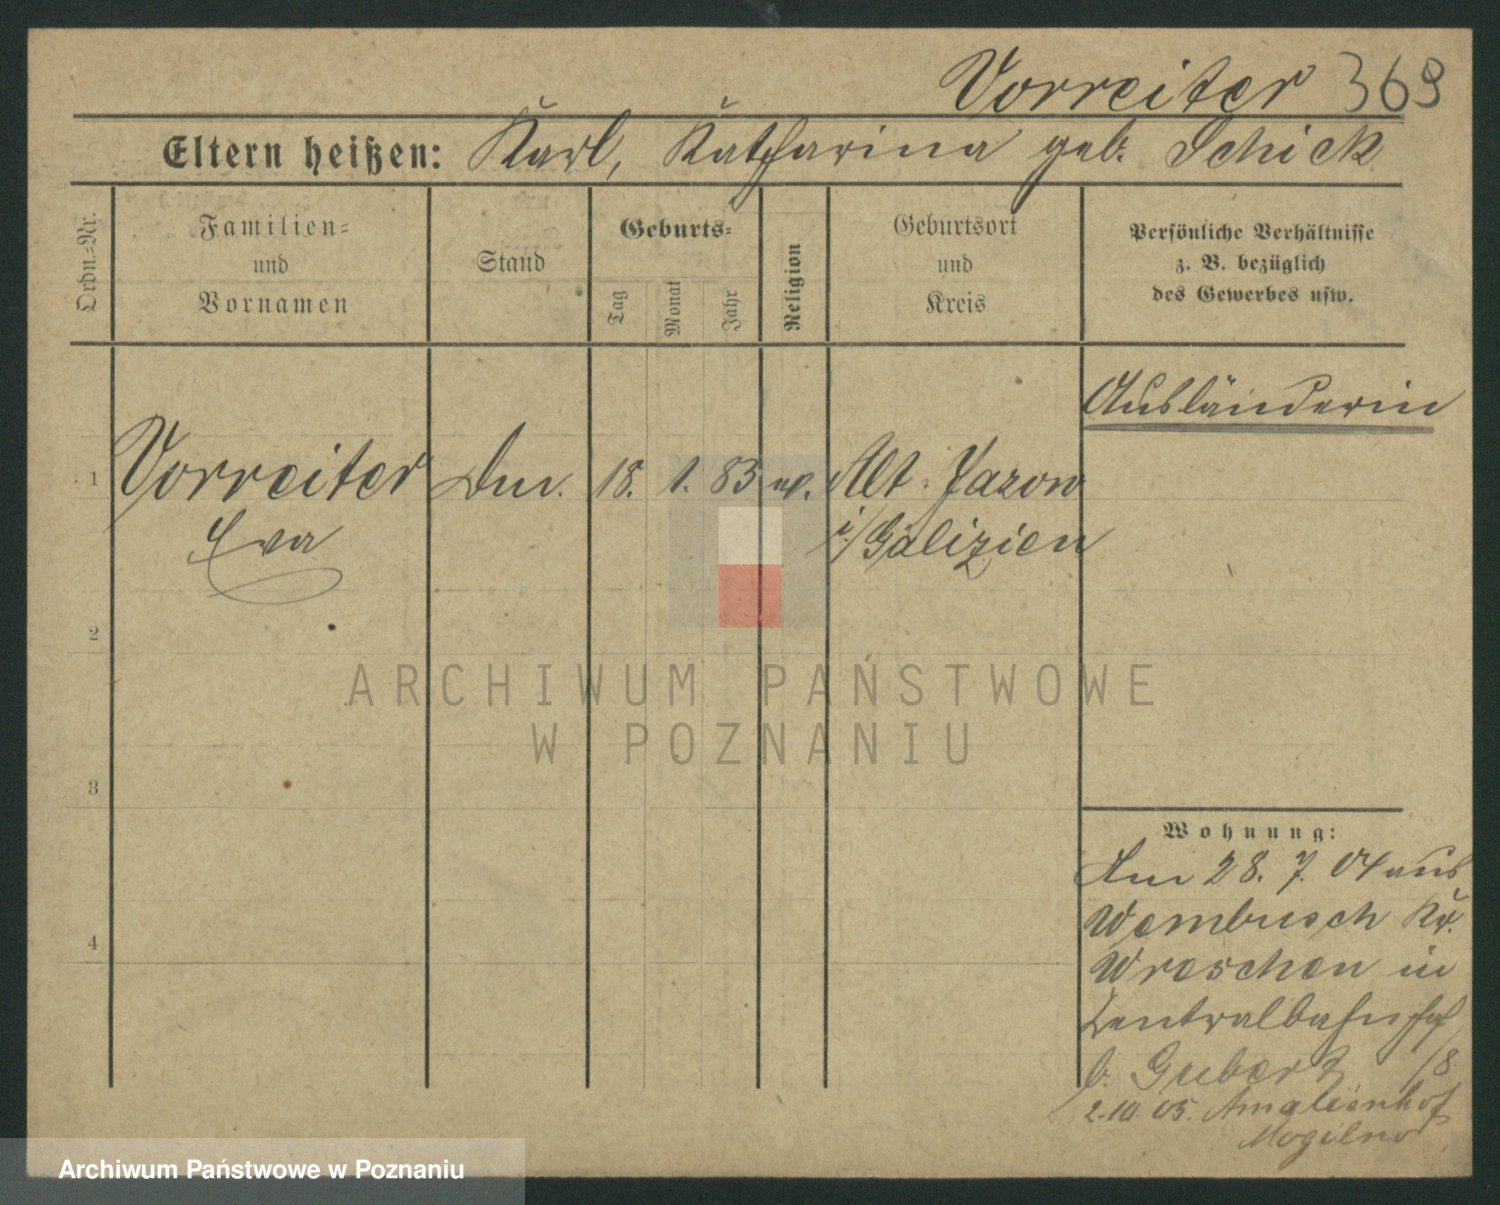 Vorreiter 369
Eltern heißen: Karl, Katharina geb. Schick
Ordn.-Nr.
Familien-
und
Vornamen
Stand
Geburts-
Tag
Monat
Jahr
Religion
Geburtsort
und
Kreis
Persönliche Verhältnisse
z. B. bezüglich
des Gewerbes usw.
Ausländerin
1 Vorreiter 18. 1. 83 Alt-Jazow
Eva i/Galizien
2
3
4
Wohnung:
Am 28. 7. 04 aus
Wembusch Kr.
Wreschen in
Centralbahnhof
b. Gubert /8
2.10.05. Amalienhof
Mogilno
ARCHIWUM PAŃSTWOWE
W POZNANIU
Archiwum Państwowe w Poznaniu